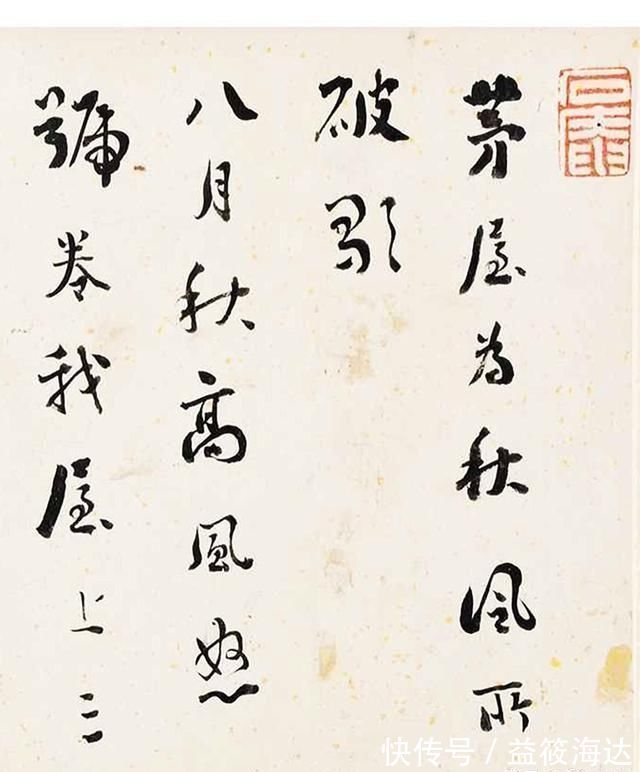 茅屋為秋風所
破歌
八月秋高風怒
號卷我屋上三
快传号 / 益筱海达